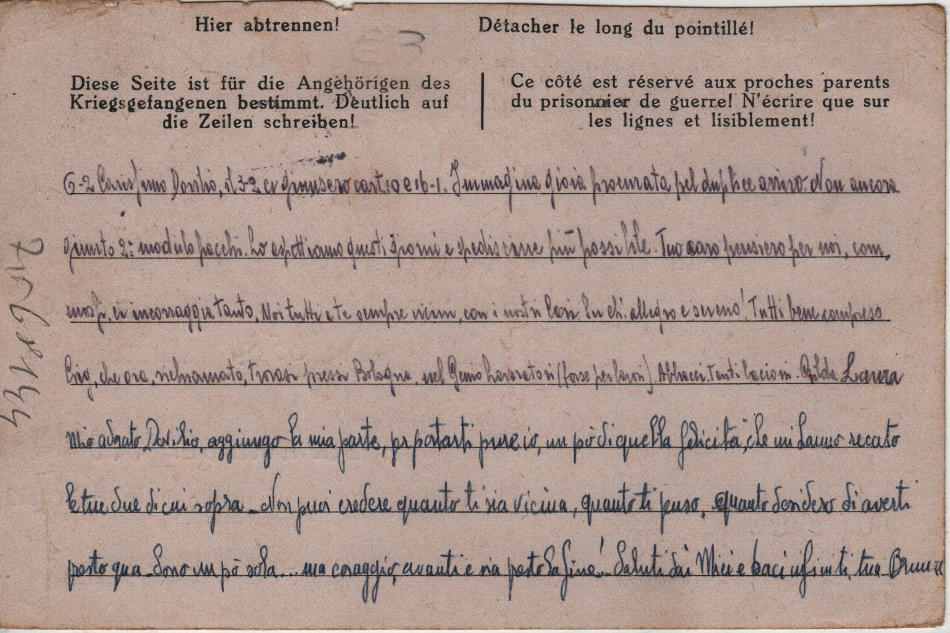 Hier abtrennen!
Détacher le long du pointillé!
Diese Seite ist für die Angehörigen des
Kriegsgefangenen bestimmt. Deutlich auf
die Zeilen schreiben!
Ce côté est réservé aux proches parents
du prisonnier de guerre! N'écrire que sur
les lignes et lisiblement!
6-2 Carissimo Dovilio, il 3-2 ci giunsero e 16-1. Immagina gioia procurata pel duplice arrivo. Non ancora
giunto 2° modulo pacchi. Lo aspettiamo questi giorni e spedis più possibile. Tuo caro pensiero per noi, com,
mossi, ci incoraggia tanto. Noi tutti a te sempre vicini, con i nostri Cari. allegro e sereno! Tutti bene compreso
che ora, richiamato, trovasi pressi Bologna nel Genio Lavoratori (forse per poco). Abbracci, tanti bacioni. Gilda Laura
Mio adorato Dovilio, aggiungo la mia parte, per portarti pure io, un pò di quella felicità, che mi hanno recato
le tue due di cui sopra. Non puoi credere quanto ti sia vicina, quanto ti penso, quanto desidero di averti
presto qua. Sono un pò sola... ma coraggio, avanti e sia presto la fine! Saluti dai Miei e baci infiniti, tua